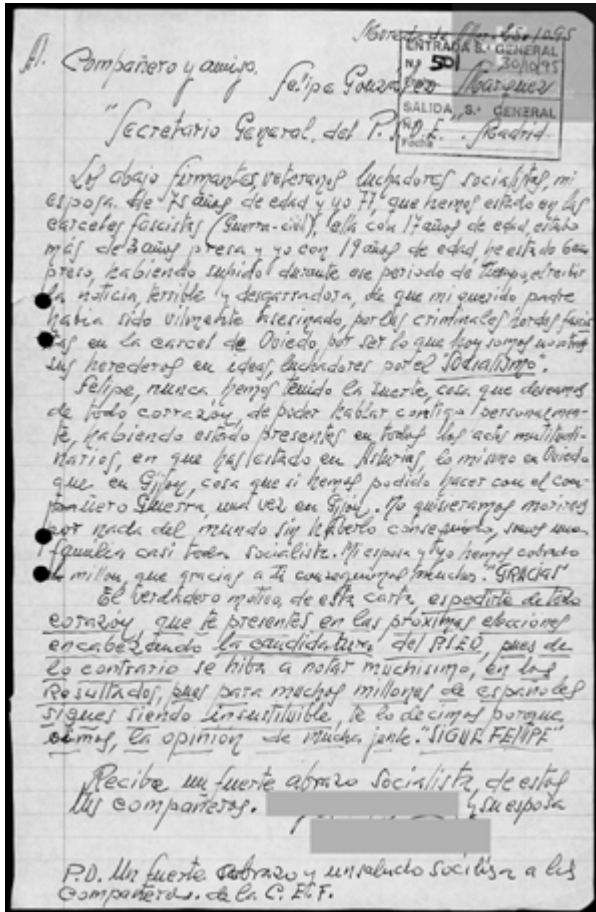 Moreda de Aller 25-10-95
ENTRADA S. GENERAL
N.º 501 30/10/95
SALIDA, S. GENERAL
N.º
Fecha
Al Compañero y amigo.
Felipe González Márquez
Secretario General, del P.S.O.E. Madrid.
Los abajo firmantes, veteranos luchadores socialistas, mi
esposa. de 75 años de edad y yo 77, que hemos estado en las
carceles fascistas (Guerra-civil), ella con 17 años de edad, estubo
más de 3 años presa y yo con 19 años de edad, he estado 6 años
preso, habiendo sufrido durante ese periodo de tiempo, el recibir
la noticia, terrible y desgarradora, de que mi querido padre
habia sido vilmente asesinado, por las criminales hordas fascis
tas en la carcel de Oviedo, por ser lo que hoy somos nosotros
sus herederos en ideas, luchadores por el "Socialismo".
Felipe, nunca hemos tenido la suerte, cosa que deseamos
de todo corrazoy, de poder hablar contigo personalmen-
te, habiendo estado presentes en todos los actos multitudi-
narios, en que has estado en Asturias, lo mismo en Oviedo
que en Gijon, cosa que si hemos podido hacer con el com-
pañero Guerra, una vez en Gijon. No quisieramos morires
por nada del mundo sin haberlo conseguido, somos una
familia casi toda socialista. Mi esposa y yo hemos cobrado
el millon, que gracias a ti conseguimos muchos. "GRACIAS"
El verdadero motivo, de esta carta, es pedirte de todo
corazoy, que te presentes en las próximas elecciones
encabezando la candidatura del PSEO, pues de
lo contrario se hiba a notar muchisimo, en los
Resultados, pues para muchos millones de españoles
sigues siendo insustituible, te lo decimos porque
oimos, la opinion de mucha jente. "SIGUE FELIPE"
Recibe un fuerte abrazo socialista, de estos
tus compañeros. y su esposa
P.D. Un fuerte abrazo y un saludo a los
Compañeros. de la C. E. F.